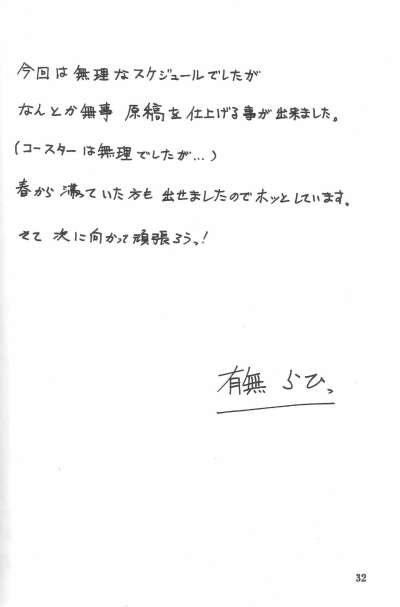 今回は無理なスケジュールでしたが
なんとか無事 原稿を仕上げる事が出来ました。
(コースターは無理でしたが…)
春から 満っていた方も 出せましたのでホッとしています。
さて 次に向かって頑張ろうっ!
有無 らひっ
32